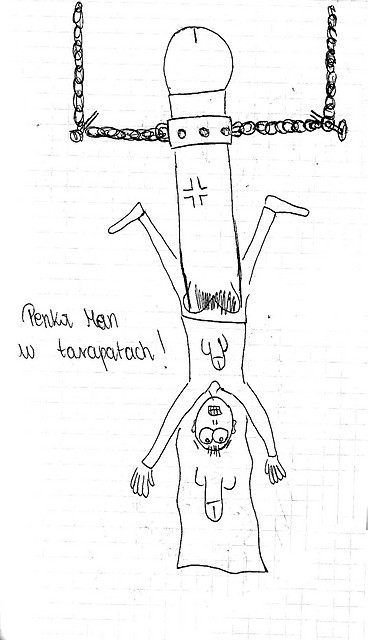 Penku Man
w tarapatach!